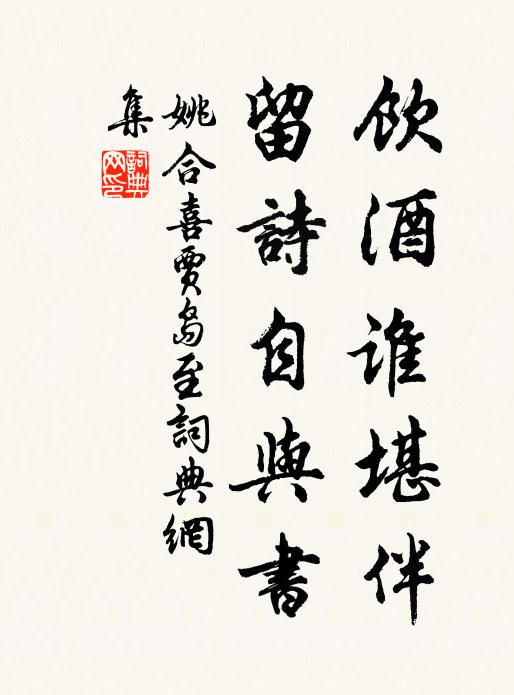 飲酒誰堪伴
留詩自與書
姚合喜賈島至詞典網
集
詞典
网印